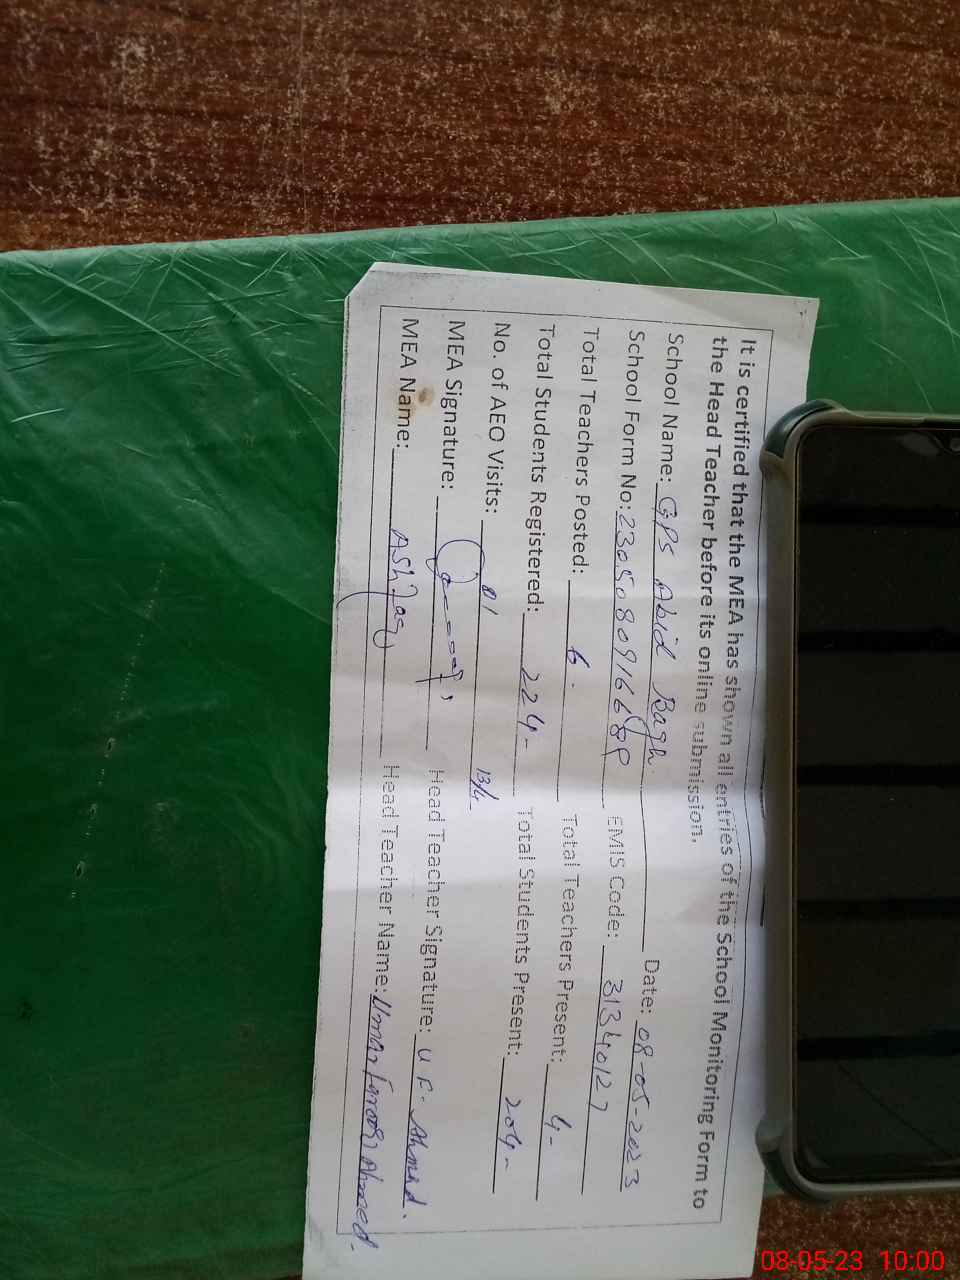 It is certified that the MEA has shown all entries of the School Monitoring Form to
the Head Teacher before its online submission.
School Name: GPS Abid Bagh Date: 08-05-2023
School Form No: EMIS Code: 31340127
Total Teachers Posted: 6- Total Teachers Present: 4-
Total Students Registered: 224- Total Students Present: 204-
No. of AEO Visits: 01 13/4
MEA Signature: Head Teacher Signature: U F. Ahmed.
MEA Name: Ashfaq Head Teacher Name: Umar Farooq Ahmed-
08-05-23 10:00